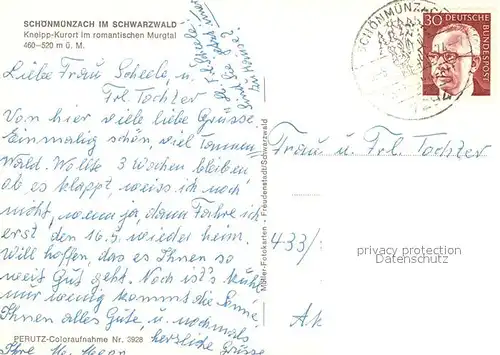 SCHÖNMÜNZACH IM SCHWARZWALD
Kneipp-Kurort im romantischen Murgtal
460-520 m ü. M.
Liebe Frau Scheele u.
Frl. Tochter
Von hier viele liebe Grüsse
Einmalig schön, viel Tannen-
Wald. Wollte 3 Wochen bleiben
ob es klappt, weiss ich noch
nicht, wenn ja, dann Fahre ich
erst den 16.5. wieder heim.
Will hoffen, das es Ihnen so
weit Gut geht. Noch ist's kühl
nur wenig kommt die Sonne
Ihnen alles Gute, u. nochmals
herzliche Grüsse
Ihre
PERUTZ-Coloraufnahme Nr. 3928
zu Hause?
Müller-Fotokarten · Freudenstadt/Schwarzwald
SCHÖNMÜNZACH
30
DEUTSCHE
BUNDESPOST
Frau u. Frl. Tochter
433/
privacy protection
Datenschutz
Ak